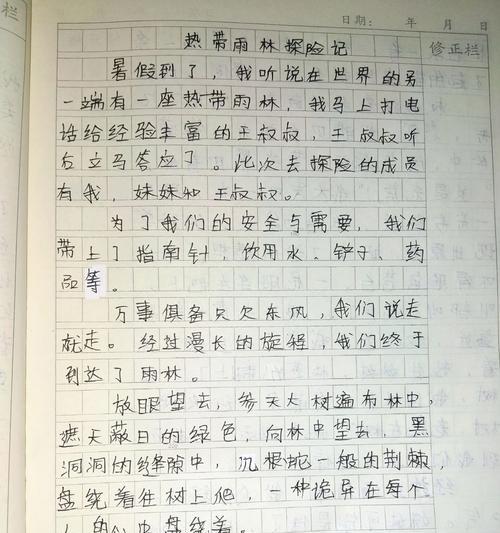 日期： 年 月 日
热带雨林探险记
修正栏
暑假到了，我听说在世界的另
一端有一座热带雨林，我马上打电
话给经验丰富的王叔叔，王叔叔听
后立马答应了。此次去探险的成员
有我，妹妹和王叔叔。
为了我们的安全与需要，我们
带上了指南针，饮用水、铲子、药
品等。
万事俱备只欠东风，我们说走
就走。经过漫长的旅程，我们终于
到达了雨林。
放眼望去，参天大树遍布林中，
遮天蔽日的绿色，向林中望去，黑
洞洞的缝隙中，几根蛇一般的荆棘，
盘绕着往树上爬，一种诡异在每个
人的心中盘绕着。